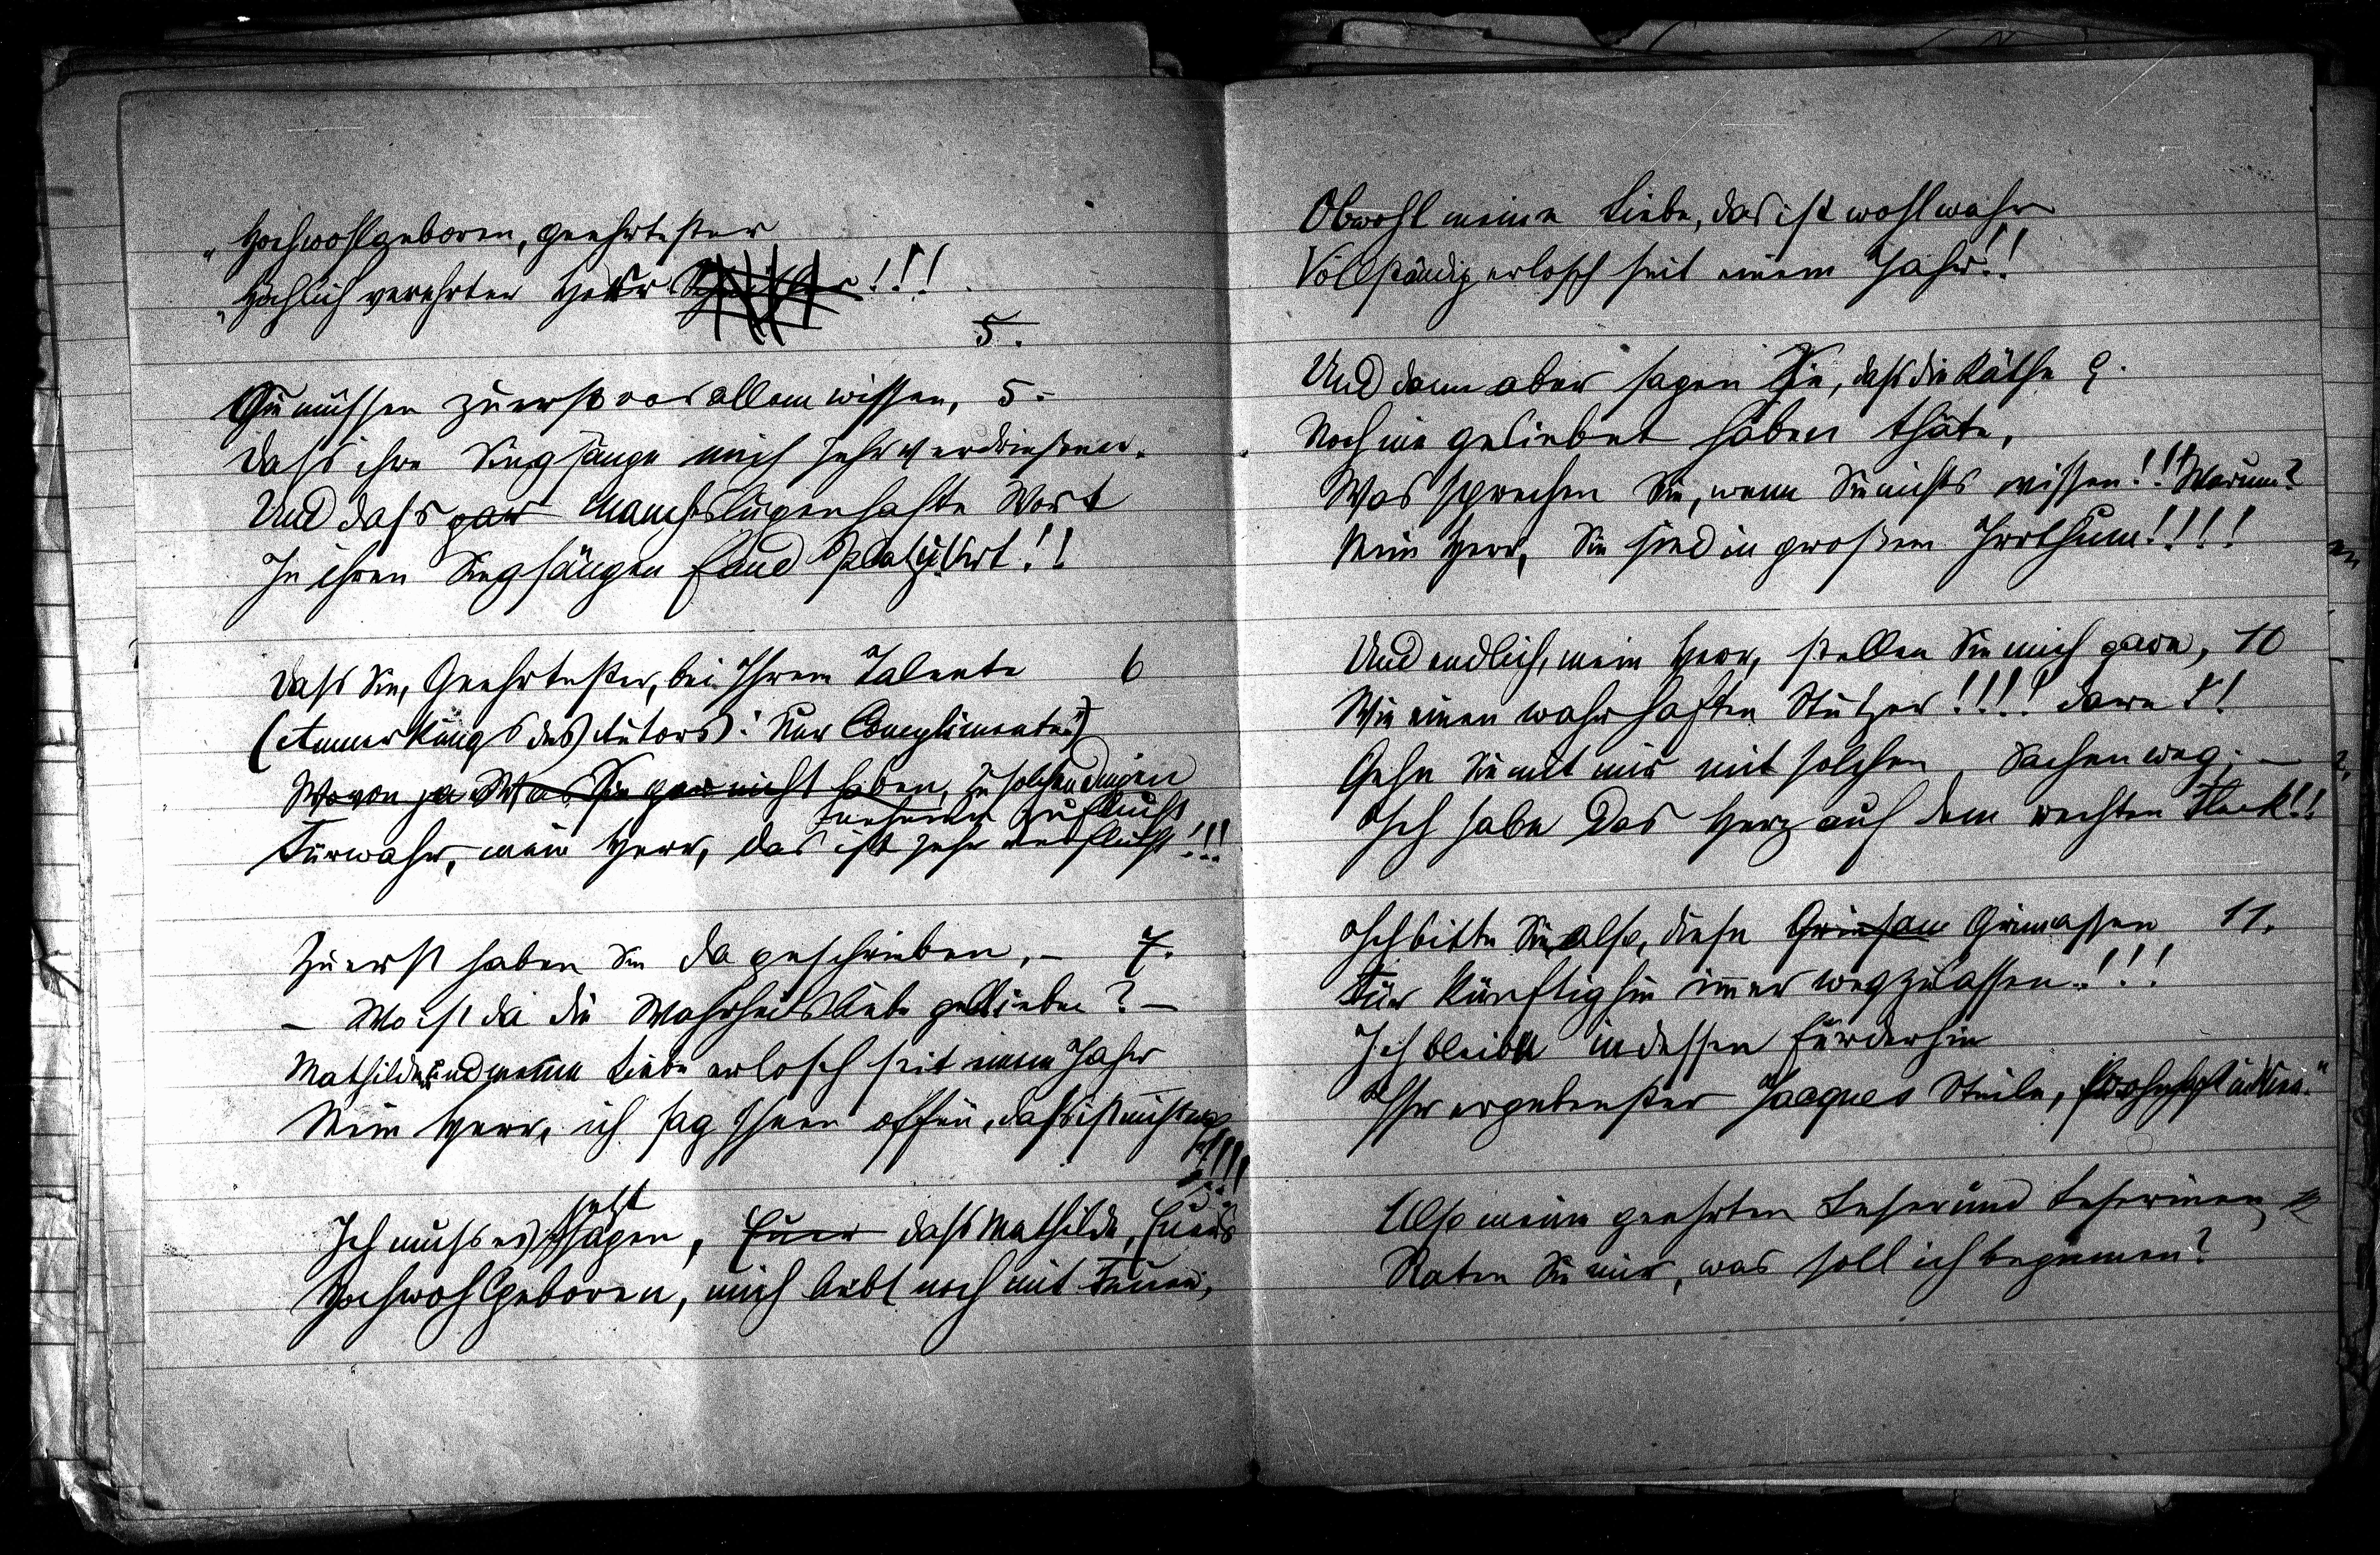 „Hochwohlgeboren, geehrtester
„Höchlich verehrter Herr !!!
5.
Sie müssen zuerst vor allem wissen, 5.
Dass ihre Singsänge mich sehr verdrießen.
Und dass gar manches lügenhafte Wort
In ihren Singsängen fand Platz !!
Dass Sie, Geehrtester, bei Ihrem Talente 6
(Anmerkung des Autors: Nur Complimente!)
Wovon ja Was Sie gar nicht haben, zu solchen Dingen
nehmen Zuflucht
Fürwahr, mein Herr, das ist sehr verflucht!!!
Zuerst haben Sie da geschrieben, – 7.
– Wo ist da die Wahrheitsliebe geblieben? –
Mathilde und meine Liebe erlosch seit einem Jahr
Mein Herr, ich sag Ihnen offen, dass ist nicht wahr!!!!
jetzt
Ich muss es sagen, Euer dass Mathilde, Euer
Hochwohlgeboren, mich liebt noch mit Feuer,
Obwohl meine Liebe, das ist wohl wahr
Vollständig erlosch seit einem Jahr!!
Und dann aber sagen Sie, dass die Käthe 9.
Noch nie geliebet haben thäte,
Was sprechen Sie, wenn Sie nichts wissen!!! Warum?
Mein Herr, Sie sind in großem Irrthum!!!!
Und endlich, mein Herr, stellen Sie mich gare, 10
Wie einen wahrhaften Stutzer!!!! dare!!
Gehn Sie mit mir mit solchen Sachen weg; –
Ich habe Das Herz auf dem rechten Fleck!!
Ich bitte Sie also, diese Grimassen 11.
Für künftighin immer wegzulassen!!!
Ich bleibe indessen fürderhin
Ihr ergebenster Jacques Steile, wohnhaft in Wien.“
Also meine geehrten Leser und Leserinnen, 12
Raten Sie mir, was soll ich beginnen?